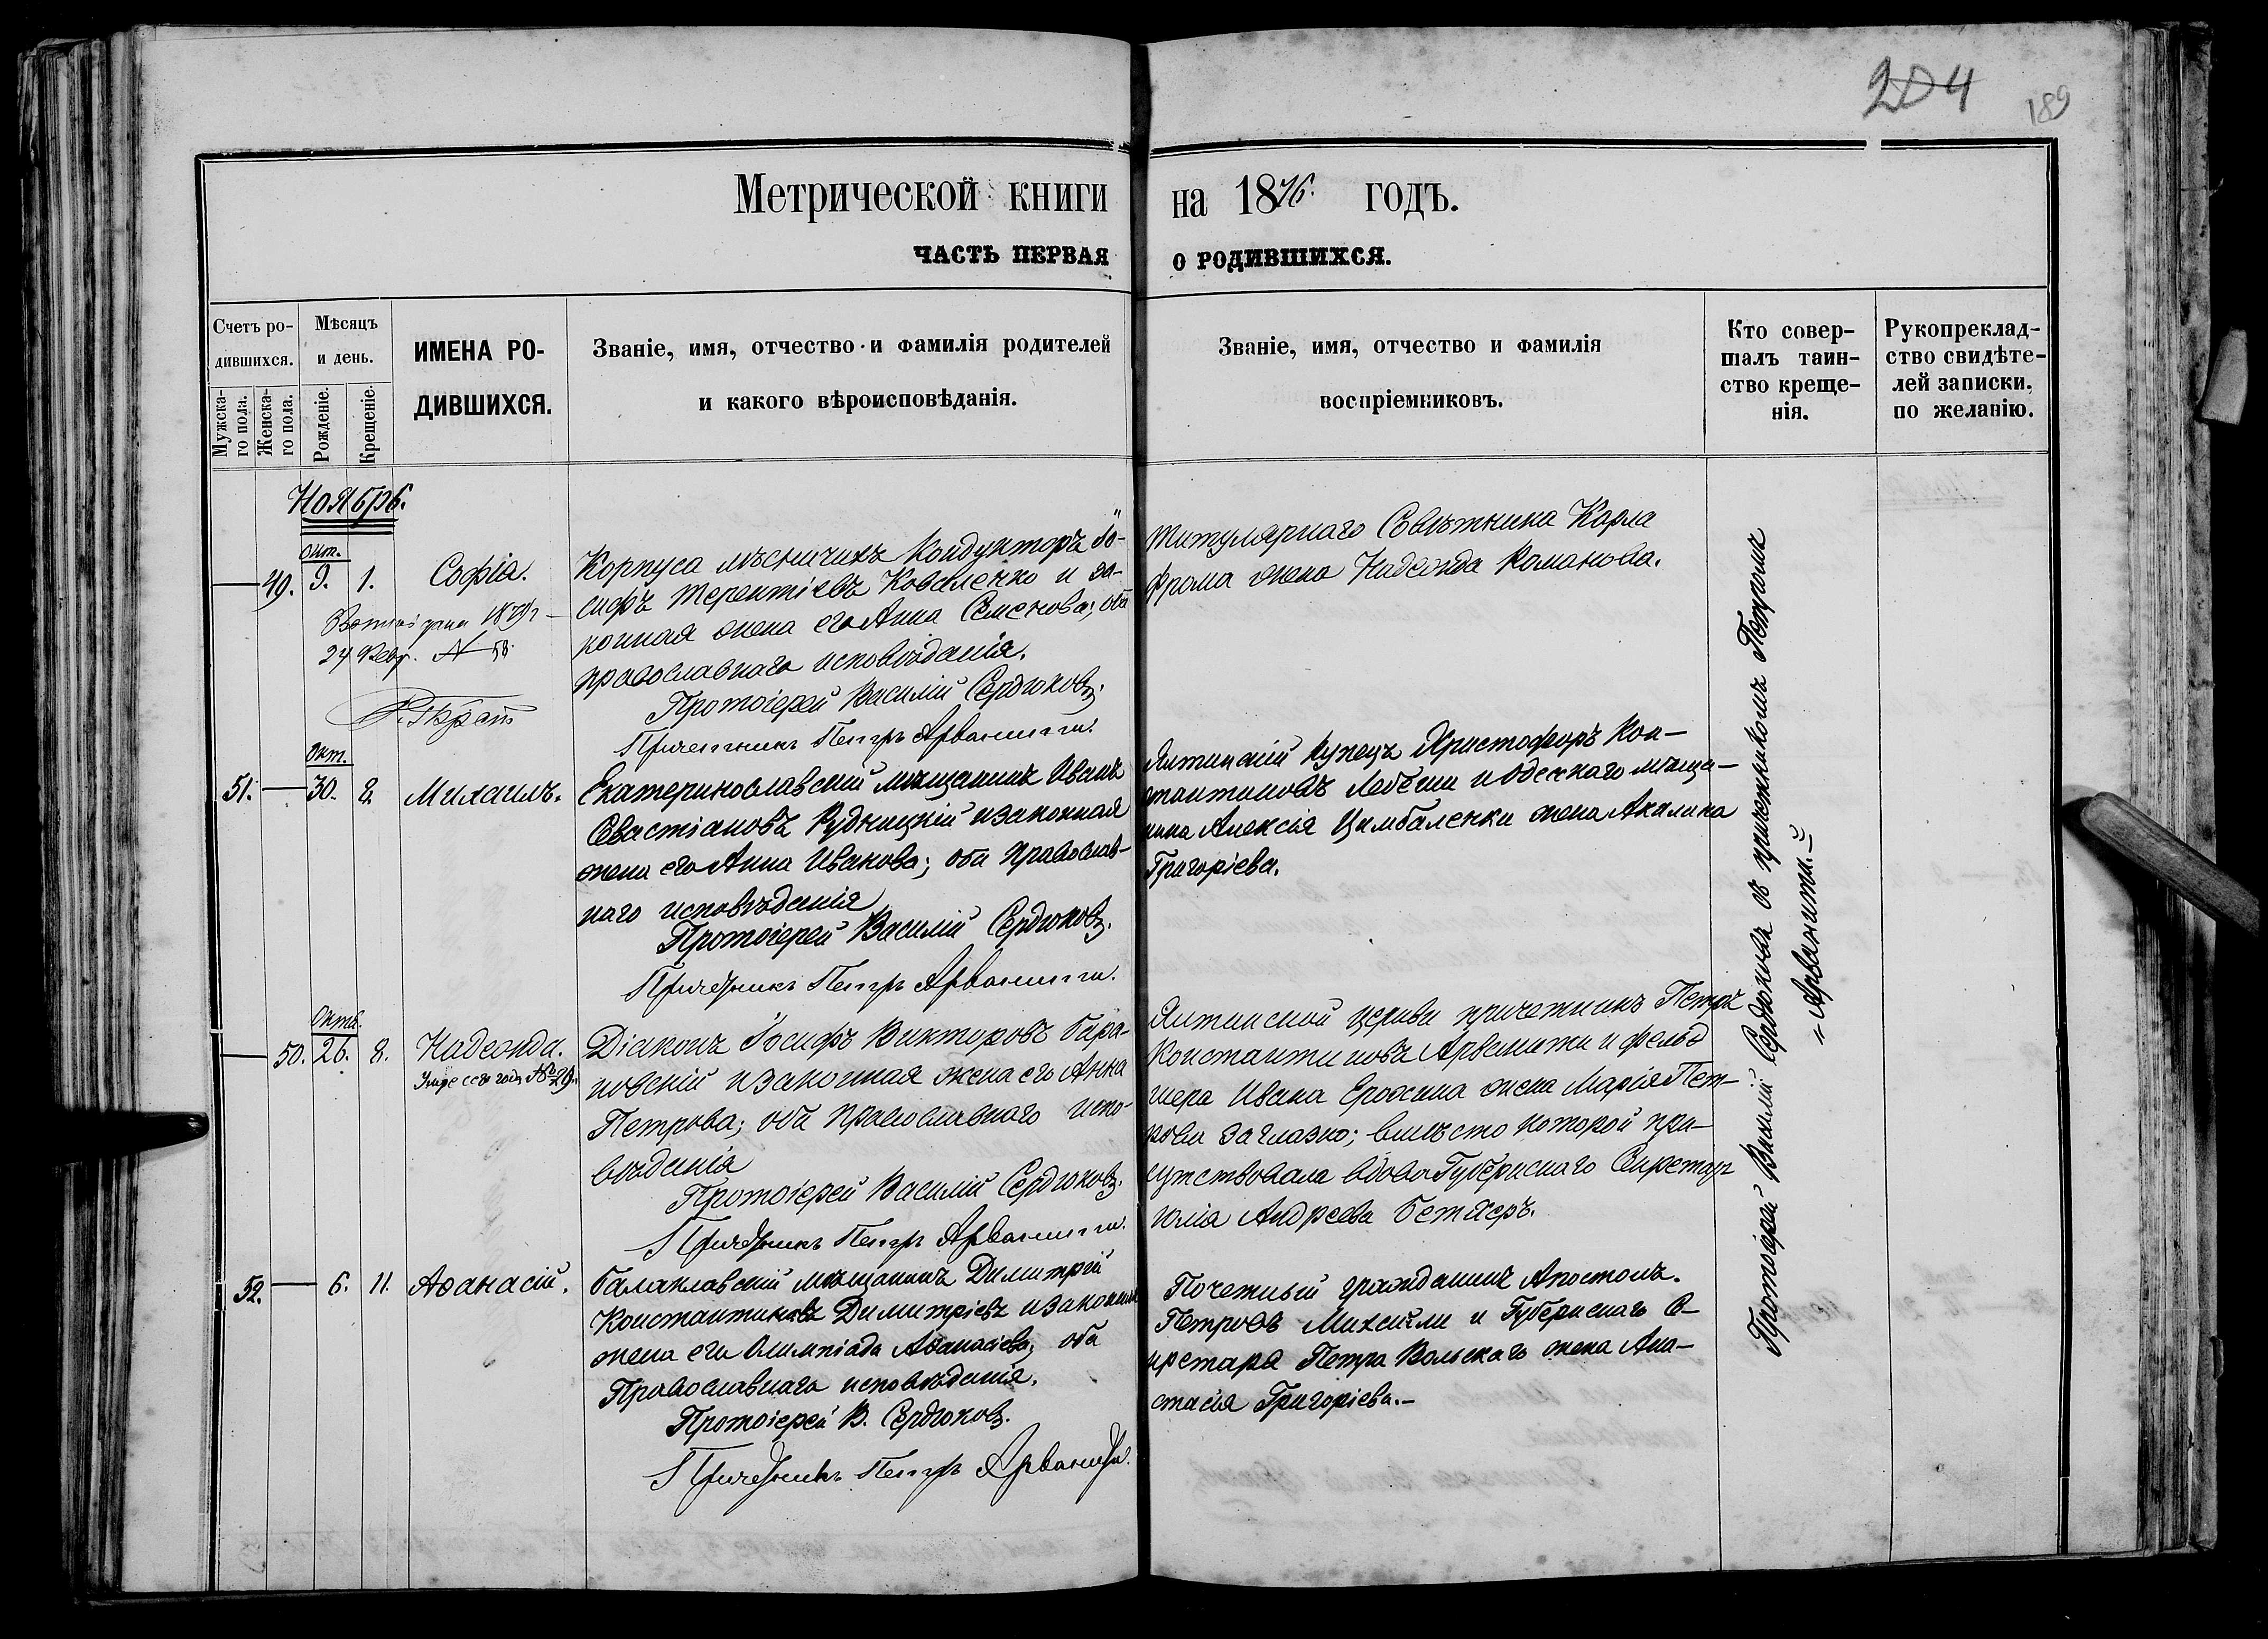 204
189
Метрической книги на 1876. годъ.
ЧАСТЬ ПЕРВАЯ О РОДИВШИХСЯ.
Счетъ ро-
дившихся.
Мужска-
го пола.
Женска-
го пола.
Мѣсяцъ
и день.
Рожденіе.
Крещеніе.
ИМЕНА РО-
ДИВШИХСЯ.
Званіе, имя, отчество и фамилія родителей
и какого вѣроисповѣданія.
Званіе, имя, отчество и фамилія
воспріемниковъ.
Кто совер-
шалъ таин-
ство креще-
нія.
Рукопреклад-
ство свидѣте-
лей записки.
по желанію.
Ноябрь.
Окт.
49. 9. 1. Софія.
24 Февр. № 58.
Корпуса лѣсничихъ Кондукторъ Іо-
сифъ Терентіевъ Коваленко и за-
конная жена его Анна Семенова; оба
православнаго исповѣданія.
Протоіерей Василій Сердюковъ.
Причетникъ Петръ Арванити.
Титулярнаго Совѣтника Карла
Фрома жена Надежда Романова.
Окт.
51. 30. 8. Михаилъ.
Екатеринославскій мѣщанинъ Иванъ
Севастіановъ Рудницкій и законная
жена его Анна Иванова; оба православ-
наго исповѣданія
Протоіерей Василій Сердюковъ.
Причетникъ Петръ Арванити.
Ялтинскій Купецъ Христофоръ Кон-
стантиновъ и Одесскаго мѣща-
нина Алексія Цимбаленки жена Акилина
Григоріева.
Окт.
50. 26. 8. Надежда.
Умре сего года № 29.
Діаконъ Іосифъ Викторовъ Бара-
новскій и законная жена его Анна
Петрова; оба православнаго испо-
вѣданія
Протоіерей Василій Сердюковъ.
Причетникъ Петръ Арванити.
Ялтинской церкви причетникъ Петръ
Константиновъ Арванити и фельд
шера Ивана Ерохина жена Марія Пет-
рова заглазно; вмѣсто которой при-
сутствовала вдова Губернскаго Секретаря
Юлія Андреева Бетхеръ.
52. 6. 11. Аѳанасій.
Балаклавскій мѣщанинъ Димитрій
Константиновъ Димитріевъ и законная
жена его Олимпіада Аѳанасіева; оба
Православнаго исповѣданія.
Протоіерей В. Сердюковъ.
Причетникъ Петръ Арванити.
Почетный гражданинъ Апостолъ.
Петровъ Михаили и Губернскаго Се-
кретаря Петра Вольскаго жена Ана-
стасія Григоріева.-
Протоіерей Василій Сердюковъ съ причетникомъ Петромъ
Арванити.